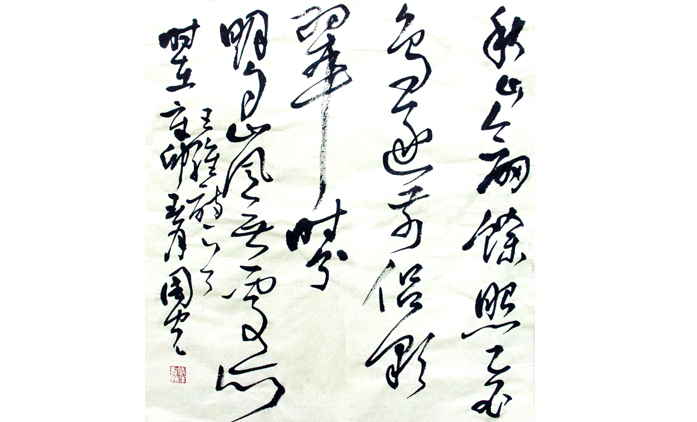 秋山斂餘照飛
鳥逐前侶彩
翠时分
明夕嵐無處所
王維詩一首
时在辛卯